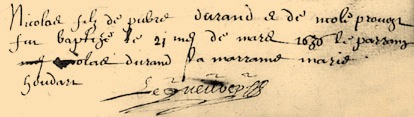 Nicolas filz de pierre durand et de nicole prouost
fut baptizé le 21 mes de mars 1636 le parrain
nicolas durand la marraine marie
houdart